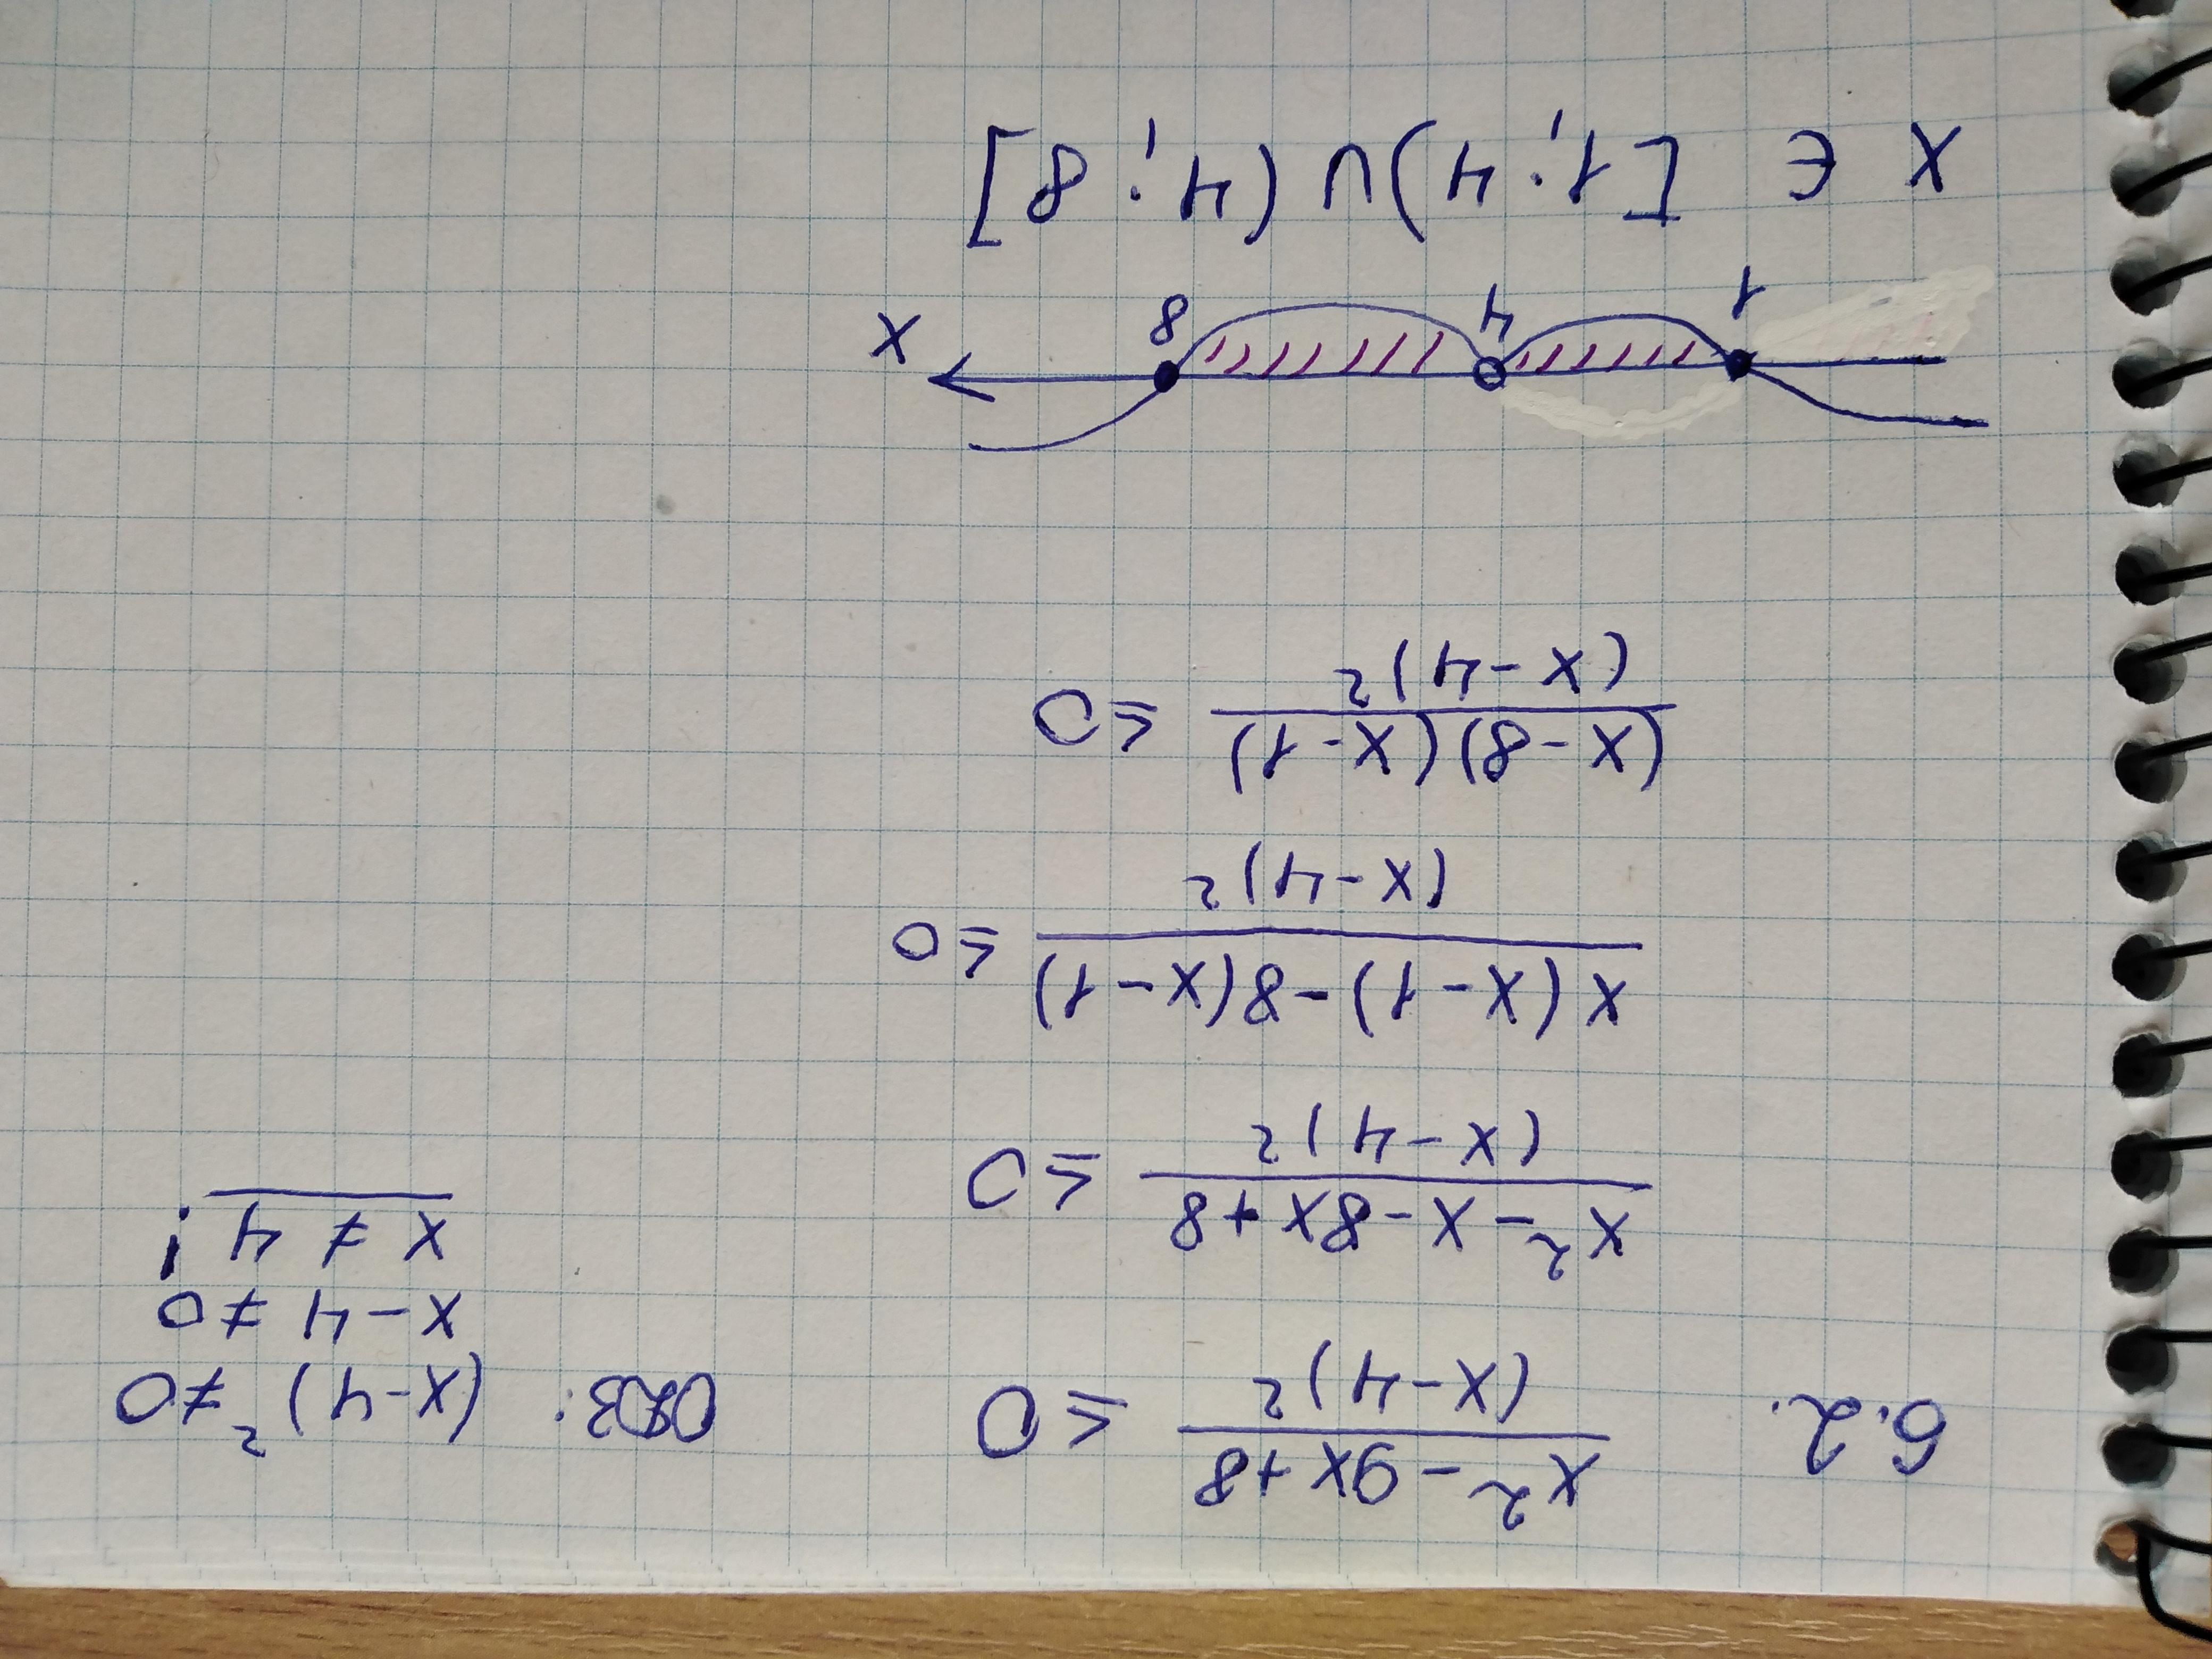 6.2. (x² - 9x + 8)/(x - 4)² ≤ 0 ОДЗ: (x - 4)² ≠ 0
x - 4 ≠ 0
x ≠ 4 !
(x² - x - 8x + 8)/(x - 4)² ≤ 0
(x(x - 1) - 8(x - 1))/(x - 4)² ≤ 0
((x - 8)(x - 1))/(x - 4)² ≤ 0
1 4 8 x
x ∈ [1; 4) ∪ (4; 8]